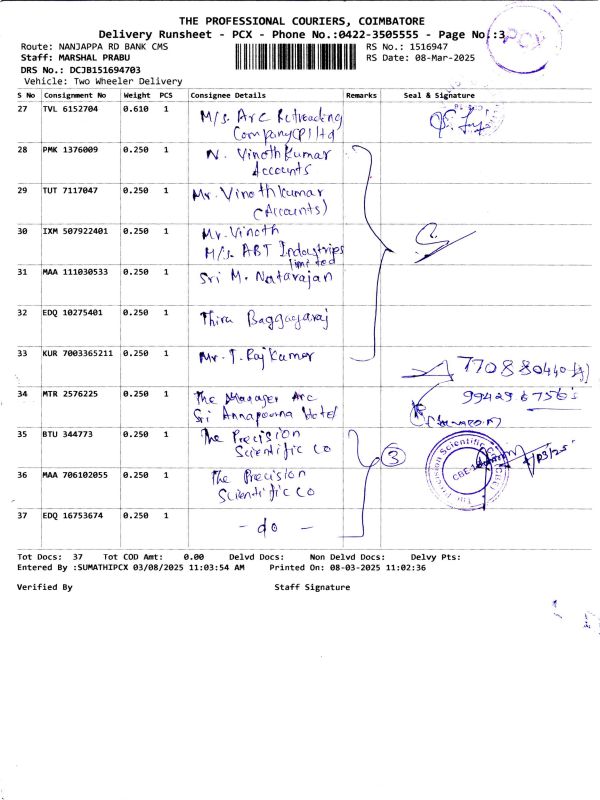 THE PROFESSIONAL COURIERS, COIMBATORE
Delivery Runsheet - PCX - Phone No.:0422-3505555 - Page No.:3
PCX
Route: NANJAPPA RD BANK CMS
RS No.: 1516947
Staff: MARSHAL PRABU
RS Date: 08-Mar-2025
DRS No.: DCJB151694703
Vehicle: Two Wheeler Delivery
S No Consignment No Weight PCS Consignee Details Remarks Seal & Signature
27 TVL 6152704 0.610 1 M/s. Arc Retreading
Company (P) ltd
28 PMK 1376009 0.250 1 N. Vinothkumar
Accounts
29 TUT 7117047 0.250 1 Mr. Vinothkumar
(Accounts)
30 IXM 507922401 0.250 1 Mr. Vinoth
M/s. ABT Industries
limited
31 MAA 111030533 0.250 1 Sri M. Natarajan
32 EDQ 10275401 0.250 1
33 KUR 7003365211 0.250 1 Mr. T. Rajkumar
34 MTR 2576225 0.250 1 The Manager Arc
Sri Annapoorna Hotel
35 BTU 344773 0.250 1 The Precision
Scientific Co
3
36 MAA 706102055 0.250 1 The Precision
Scientific Co
The Precision Scientific Co
37 EDQ 16753674 0.250 1 - do -
Tot Docs: 37 Tot COD Amt: 0.00 Delvd Docs: Non Delvd Docs: Delvy Pts:
Entered By :SUMATHIPCX 03/08/2025 11:03:54 AM Printed On: 08-03-2025 11:02:36
Verified By Staff Signature